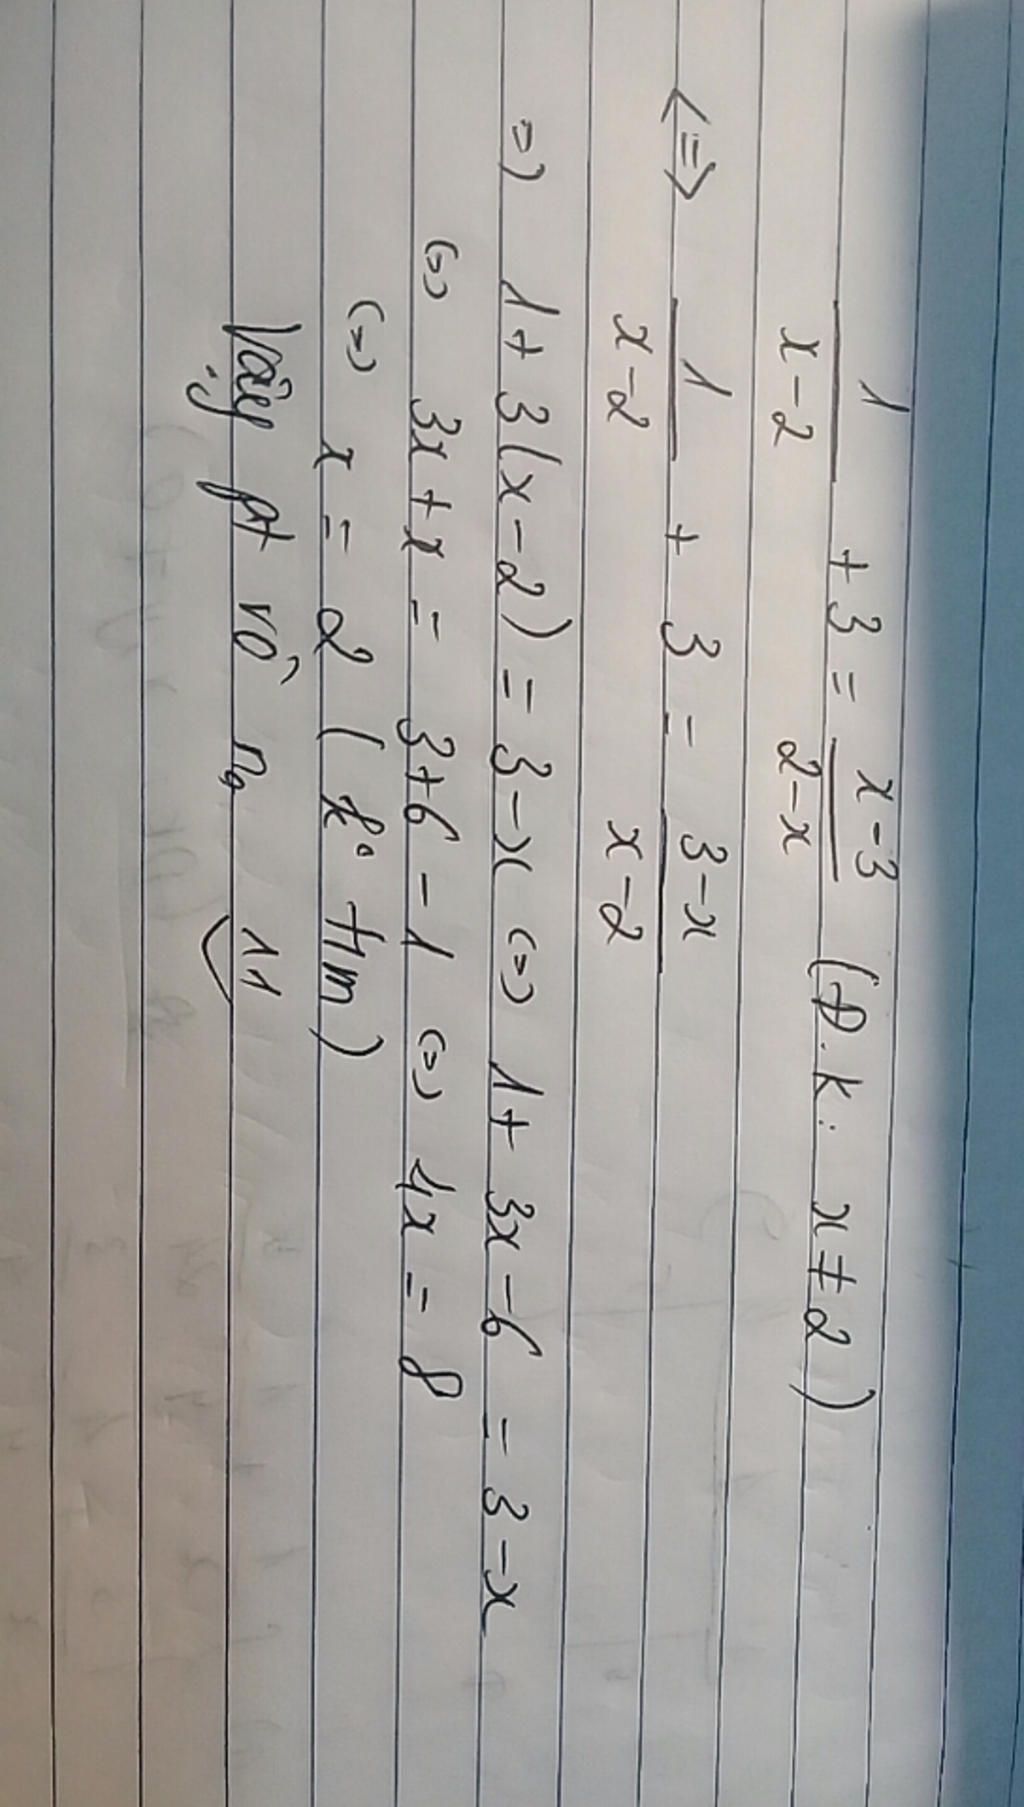 1/(x-2) + 3 = (x-3)/(2-x) (Đ.k: x ≠ 2)
<=> 1/(x-2) + 3 = (3-x)/(x-2)
=> 1 + 3(x-2) = 3-x <=> 1 + 3x - 6 = 3-x
<=> 3x + x = 3+6 - 1 <=> 4x = 8
<=> x = 2 (k° tm)
Vậy pt vô n₀